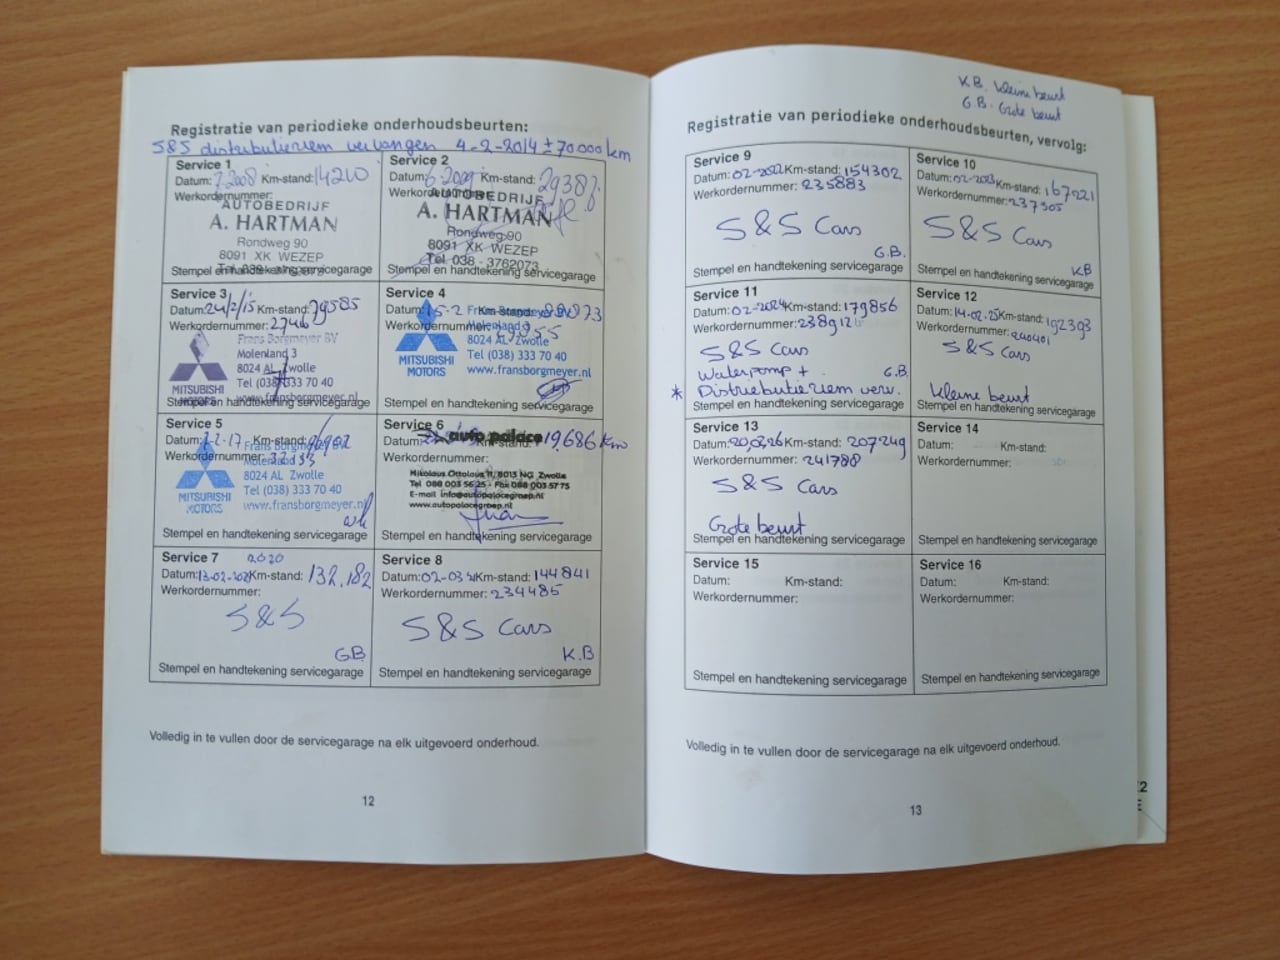 Registratie van periodieke onderhoudsbeurten:
S&S distributieriem vervangen 4-2-2014 ± 70.000 km
Service 1
Datum: 7-2008 Km-stand: 14210
Werkordernummer:
AUTOBEDRIJF
A. HARTMAN
Rondweg 90
8091 XK WEZEP
Stempel en handtekening servicegarage
Service 2
Datum: 6-2009 Km-stand: 29382
Werkordernummer:
AUTOBEDRIJF
A. HARTMAN
Rondweg 90
8091 XK WEZEP
Tel 038 - 3762073
Stempel en handtekening servicegarage
Service 3
Datum: 24/2/15 Km-stand: 79585
Werkordernummer: 27461
Frans Borgmeyer BV
Molenland 3
8024 AL Zwolle
Tel (038) 333 70 40
www.fransborgmeyer.nl
MITSUBISHI
MOTORS
Stempel en handtekening servicegarage
Service 4
Datum: 15-2 Km-stand:
Werkordernummer:
Frans Borgmeyer BV
Molenland 3
8024 AL Zwolle
Tel (038) 333 70 40
www.fransborgmeyer.nl
MITSUBISHI
MOTORS
Stempel en handtekening servicegarage
Service 5
Datum: 2-2-17 Km-stand: 96902
Werkordernummer:
Frans Borgmeyer BV
Molenland 3
8024 AL Zwolle
Tel (038) 333 70 40
www.fransborgmeyer.nl
MITSUBISHI
MOTORS
Stempel en handtekening servicegarage
Service 6
Datum: auto palace Km-stand: 19,686 km
Werkordernummer:
Nikolaus Ottolaus 11, 8013 NG Zwolle
Tel 088 003 56 25 - Fax 088 003 57 75
E-mail info@autopalacegroep.nl
www.autopalacegroep.nl
Stempel en handtekening servicegarage
Service 7 2020
Datum: 13-02-202 Km-stand: 132.182
Werkordernummer:
S&S
G.B
Stempel en handtekening servicegarage
Service 8
Datum: 02-03 21 Km-stand: 144841
Werkordernummer: 234485
S&S Cars
K.B
Stempel en handtekening servicegarage
Volledig in te vullen door de servicegarage na elk uitgevoerd onderhoud.
12
K.B. kleine beurt
G.B. Grote beurt
Registratie van periodieke onderhoudsbeurten, vervolg:
Service 9
Datum: 02-2022 Km-stand: 154302
Werkordernummer: 235883
S&S Cars
G.B.
Stempel en handtekening servicegarage
Service 10
Datum: 02-2023 Km-stand: 167221
Werkordernummer: 237305
S&S Cars
KB
Stempel en handtekening servicegarage
Service 11
Datum: 02-2024 Km-stand: 179856
Werkordernummer: 238912
S&S Cars
Waterpomp + G.B
* Distributieriem verv.
Stempel en handtekening servicegarage
Service 12
Datum: 14-02.25 Km-stand: 192393
Werkordernummer: 240401
S&S Cars
kleine beurt
Stempel en handtekening servicegarage
Service 13
Datum: 20,02,26 Km-stand: 207249
Werkordernummer: 241788
S&S Cars
Grote beurt
Stempel en handtekening servicegarage
Service 14
Datum: Km-stand:
Werkordernummer:
Stempel en handtekening servicegarage
Service 15
Datum: Km-stand:
Werkordernummer:
Stempel en handtekening servicegarage
Service 16
Datum: Km-stand:
Werkordernummer:
Stempel en handtekening servicegarage
Volledig in te vullen door de servicegarage na elk uitgevoerd onderhoud.
13